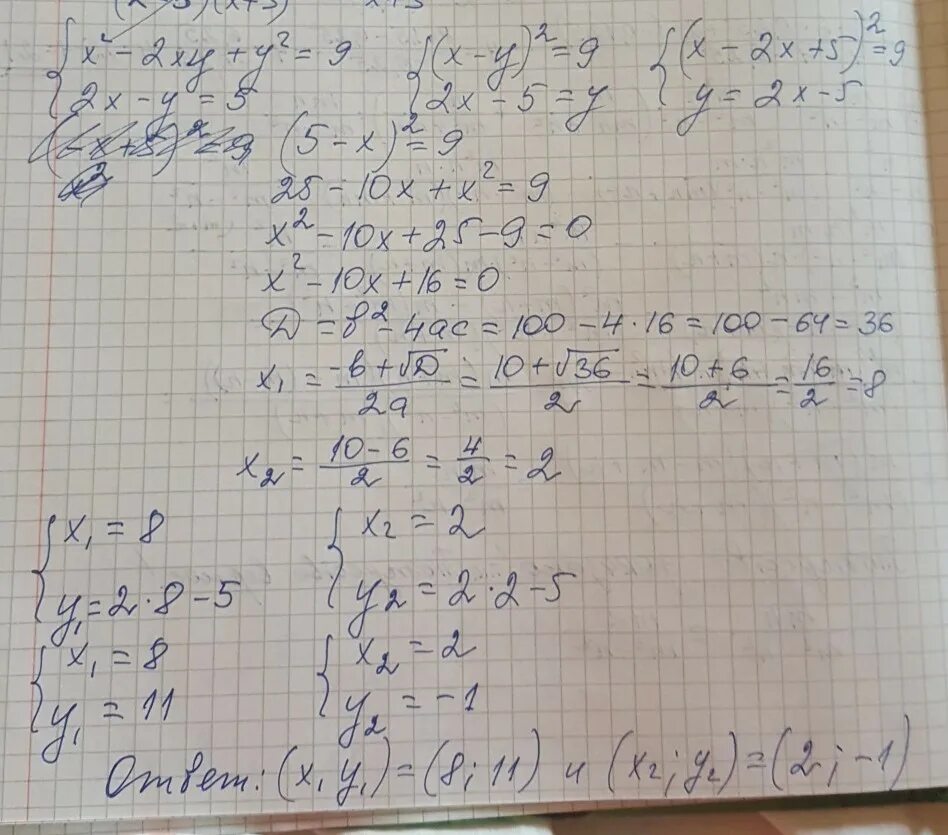 x² - 2xy + y² = 9 (x - y)² = 9 (x - 2x + 5)² = 9
2x - y = 5 2x - 5 = y y = 2x - 5
(5 - x)² = 9
25 - 10x + x² = 9
x² - 10x + 25 - 9 = 0
x² - 10x + 16 = 0
D = b² - 4ac = 100 - 4 · 16 = 100 - 64 = 36
x₁ = (-b + √D)/2a = (10 + √36)/2 = (10 + 6)/2 = 16/2 = 8
x₂ = (10 - 6)/2 = 4/2 = 2
x₁ = 8 x₂ = 2
y₁ = 2 · 8 - 5 y₂ = 2 · 2 - 5
x₁ = 8 x₂ = 2
y₁ = 11 y₂ = -1
Ответ: (x₁ y₁) = (8; 11) и (x₂; y₂) = (2; -1)